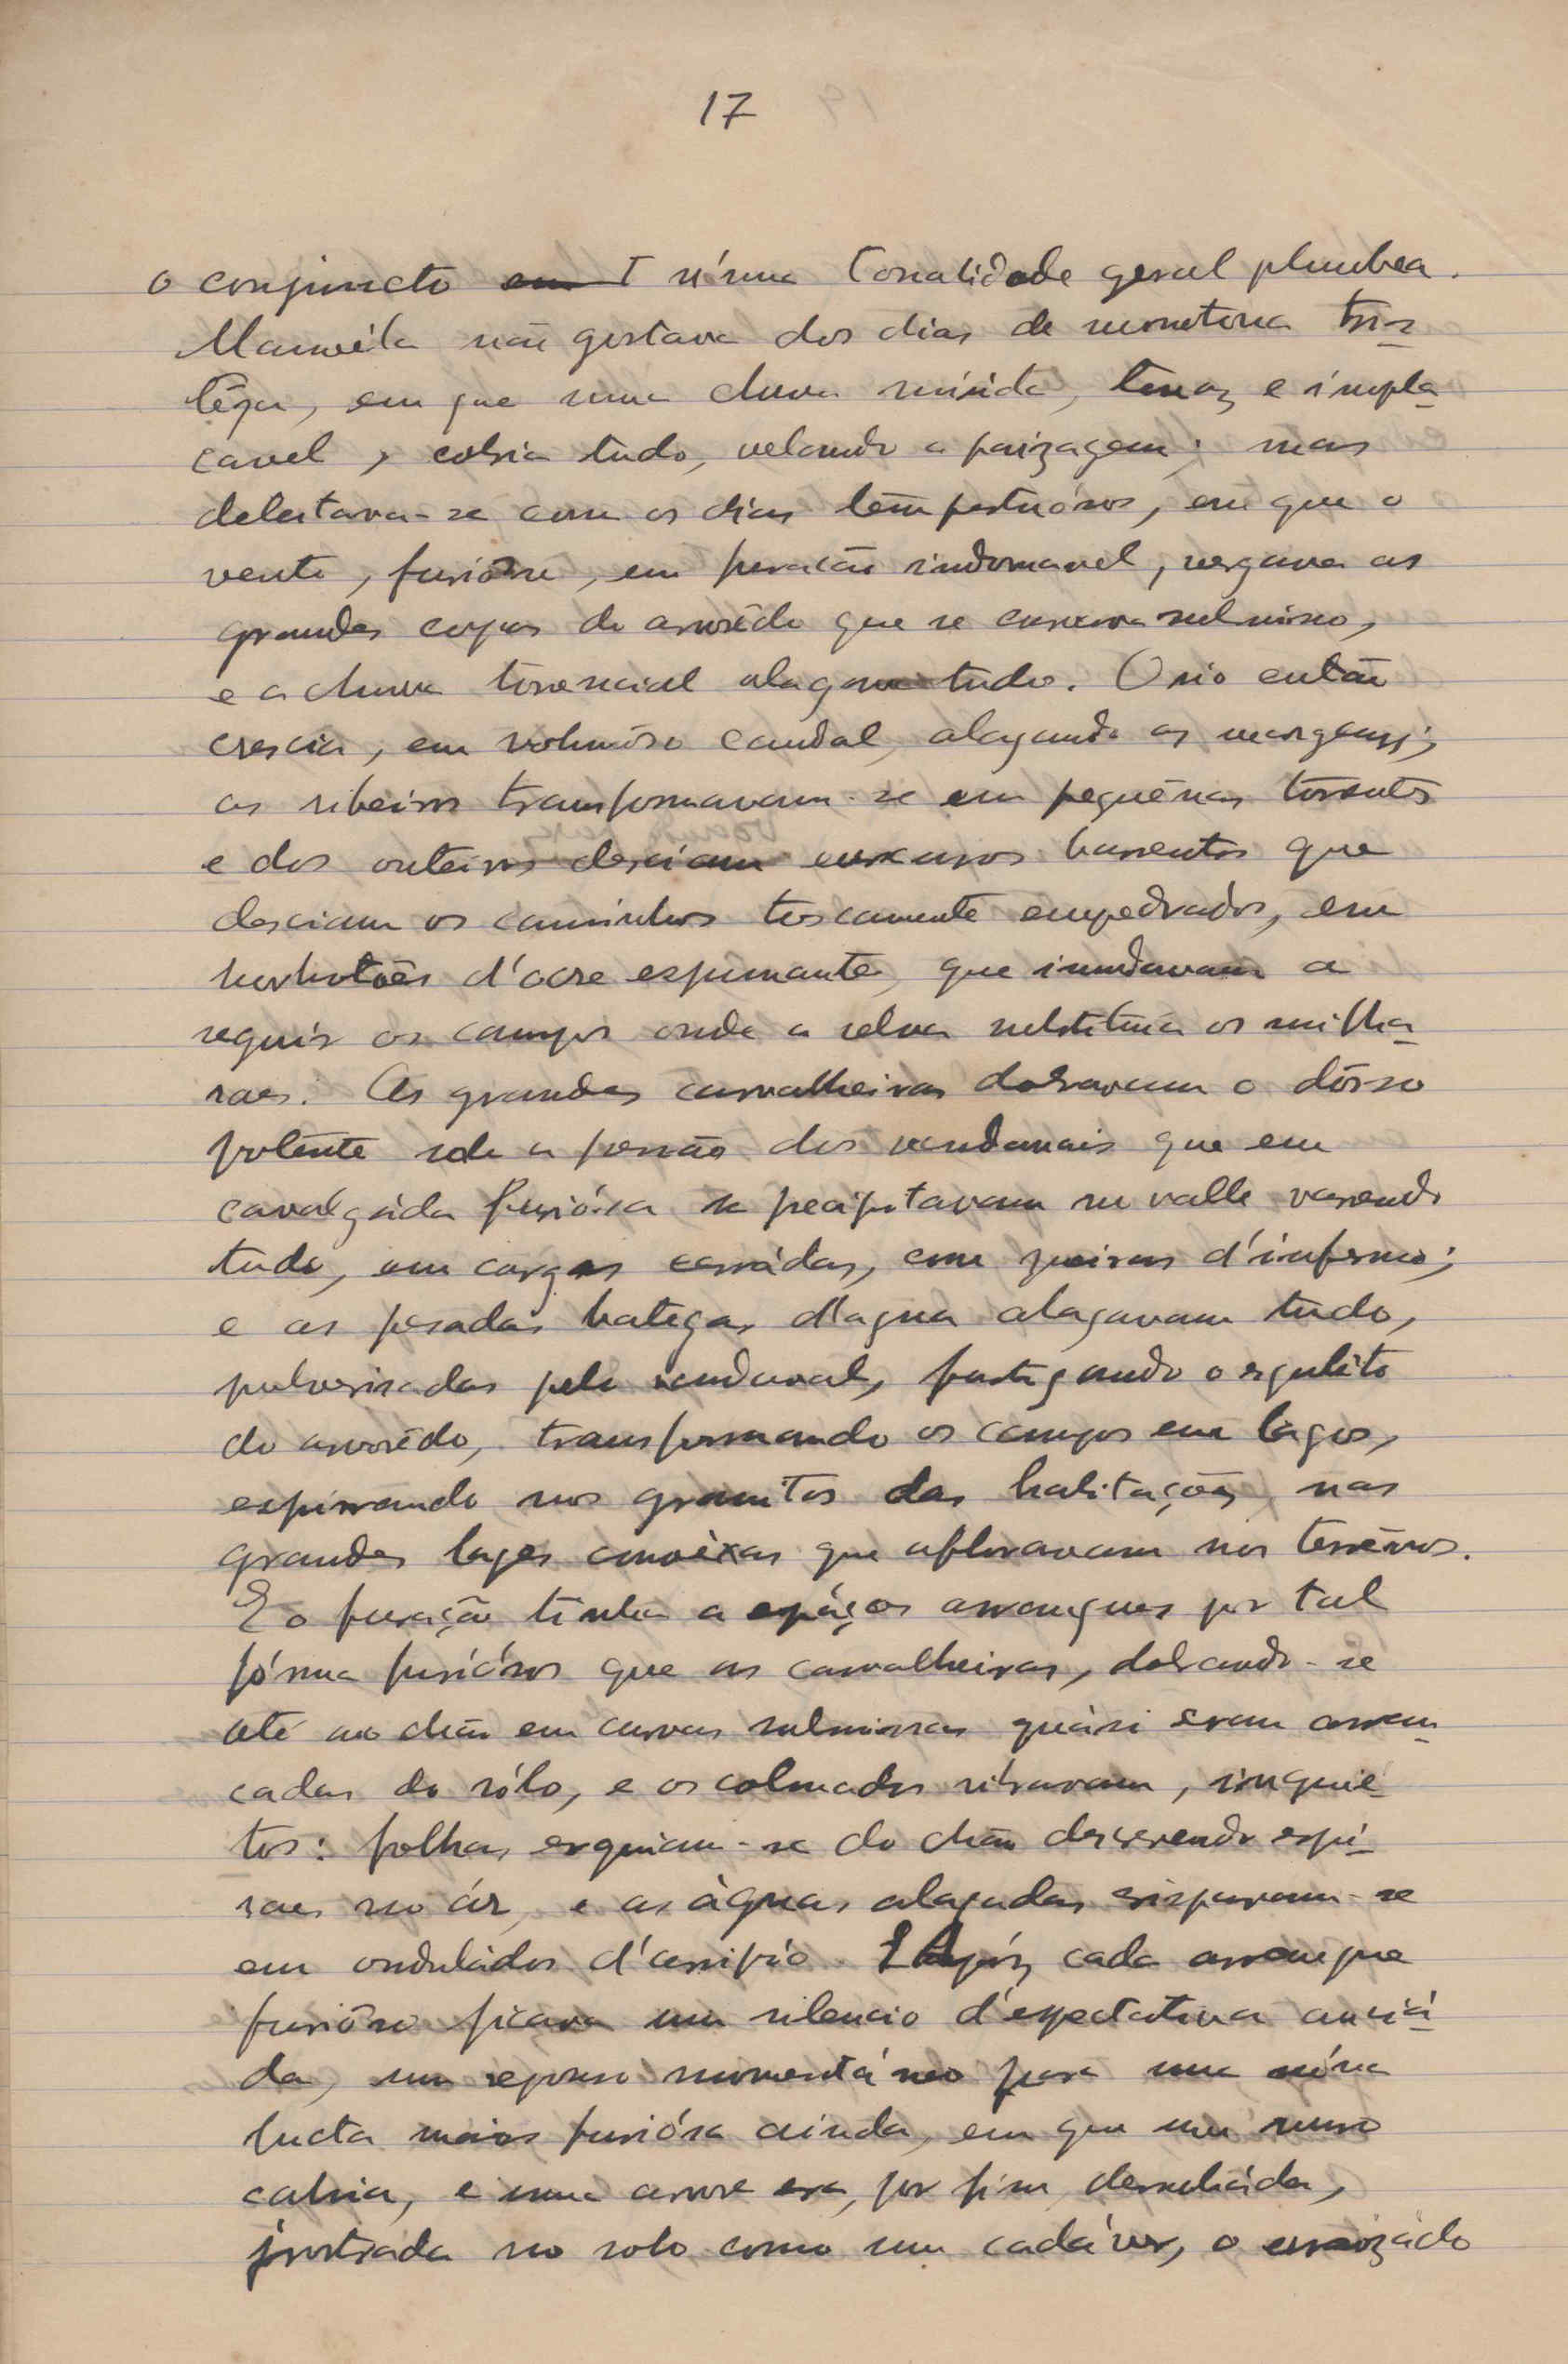 17
o conjuncto em n'uma tonalidade geral plumbea.
Manoéla não gostava dos dias de monotona tris-
têza, em que uma chuva miúda, tenaz e impla-
cavel, cobria tudo, velando a paizagem; mas
deleitava-se com os dias tempestuósos, em que o
vento, furiôso, em furacão indomavel, vergava as
grandes copas do arvorêdo que se curvava submisso,
e a chuva torrencial alagava tudo. O rio então
crescia, em volumôso caudal, alagando as margens;
os ribeiros transformavam-se em pequênas torrentes
e dos outeiros desciam enxurros barrentos que
desciam os caminhos toscamente empedrados, em
borbotões d'ocre espumante, que inundavam a
seguir os campos onde a relva substituia os milha-
raes. As grandes carvalheiras dobravam o dôrso
potente sob a pressão dos vendavais que em
cavalgáda furiósa se precipitavam no valle varrendo
tudo, em cargas cerrádas, com zoeiras d'inferno;
e as pesadas bategas d'agua alagavam tudo,
pulverisadas pelo vendaval, fustigando o
do arvorêdo, transformando os campos em lagos,
espirrando nos granitos das habitações, nas
grandes lages convéxas que afloravam nos terrênos.
E o furacão tinha a espáços arranques por tal
fórma furiósos que as carvalheiras, dobrando-se
até ao chão em curvas submissas quási eram arran-
cadas do sólo, e os colmados vibravam, inquie-
tos: folhas erguiam-se do chão descrevendo espi-
raes no ár, e as águas alagadas crispavam-se
em onduládos d'arripio. E após cada arranque
furiôso ficava um silencio d'expectativa anciá-
da, um repouso momentáneo para uma nóva
lucta mais furiósa ainda, em que um muro
cahia, e uma arvore era, por fim, derrubáda,
prostrada no solo como um cadáver, o enraizádo